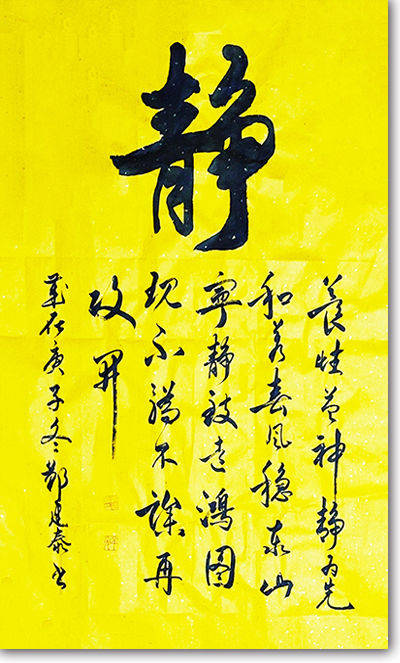 静
養性益神静为先
和若春风稳泰山
寧静致远鸿图
现不骄不躁再
攻关
岁在庚子冬郑建泰书